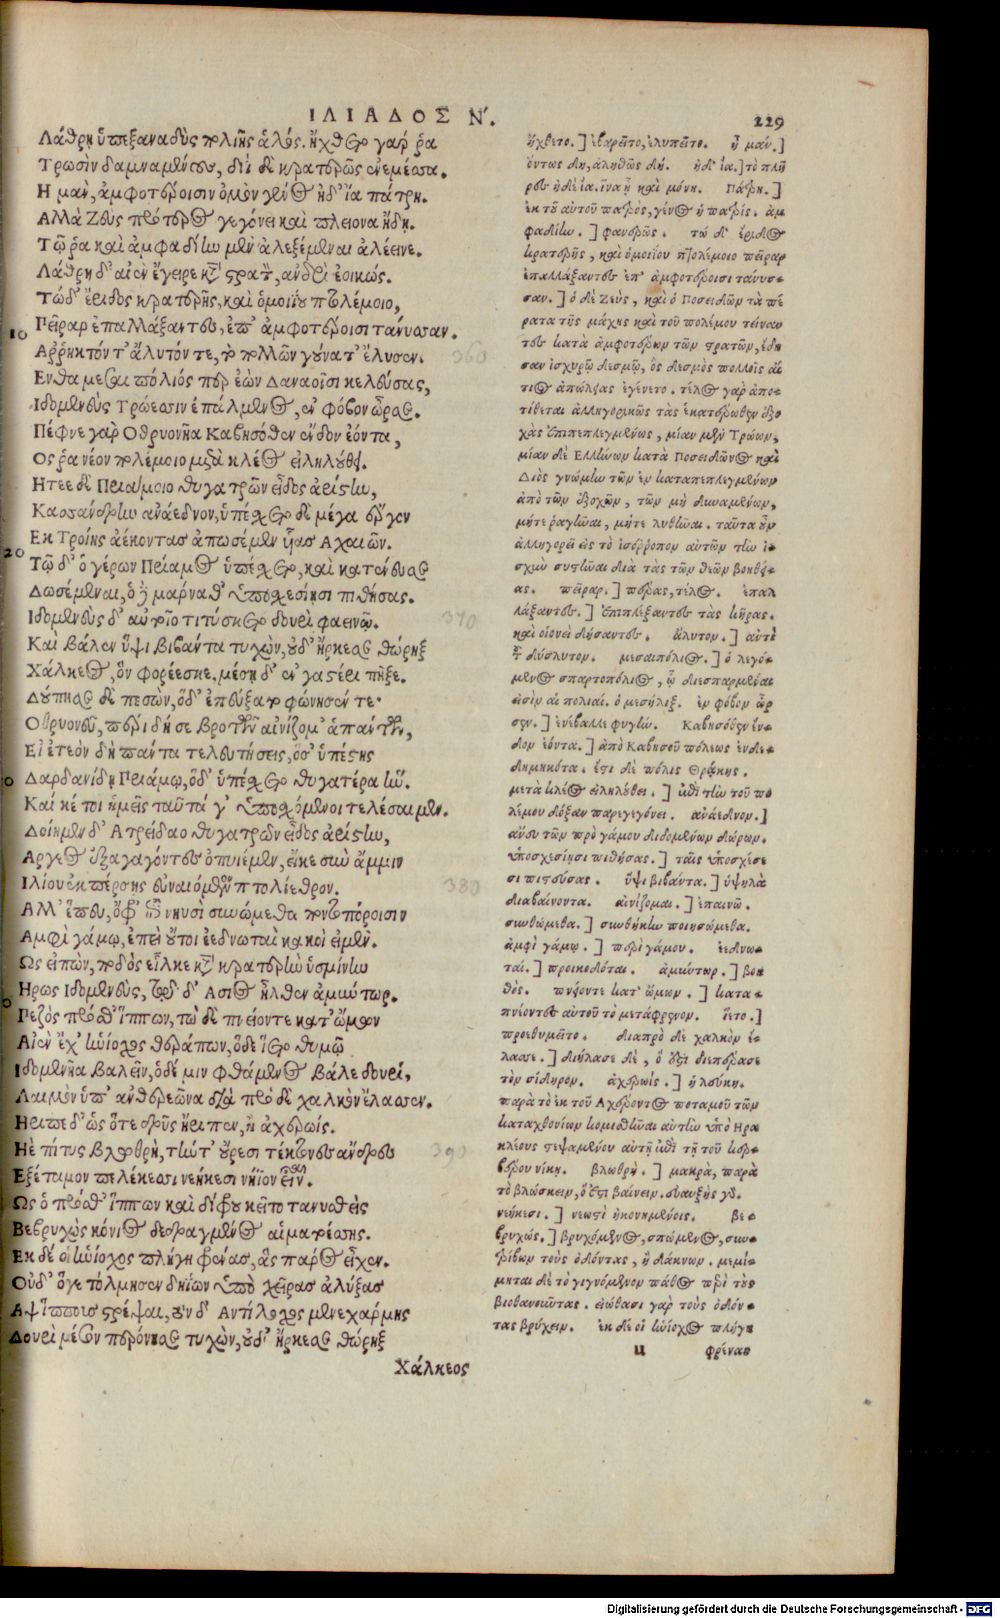 ΙΛΙΑΔΟΣ Ν΄.
229
Λάθρῃ ὑπεξαναδὺς πολιῆς ἁλός. ἤχθετο γάρ ῥα
Τρωσὶν δαμναμένους, διῒ δὲ κρατερῶς ἐνεμέσσα.
Η μὰν, ἀμφοτέροισιν ὁμὸν γένος ἠδ' ἴα πάτρη.
Αλλὰ Ζεὺς πρότερος γεγόνει καὶ πλείονα ἤδη.
Τῷ ῥα καὶ ἀμφαδίην μὲν ἀλεξέμεναι ἀλέεινε.
Λάθρῃ δ' αἰὲν ἔγειρε κατὰ στρατὸν, ἀνδρὶ ἐοικώς.
Τὼ δ' ἔριδος κρατερῆς, καὶ ὁμοιίου πολέμοιο,
10
Πεῖραρ ἐπαλλάξαντες, ἐπ' ἀμφοτέροισι τάνυσσαν.
Αῤῥηκτόν τ' ἄλυτόν τε, τὸ πολλῶν γούνατ' ἔλυσεν. 360
Ενθα μεσαιπόλιός περ ἐὼν Δαναοῖσι κελεύσας,
Ιδομενεὺς Τρώεσσιν ἐπάλμενος, ἐν φόβον ὦρσε.
Πέφνε γὰρ Οθρυονῆα Καβησόθεν ἔνδον ἐόντα,
Ος ῥα νέον πολέμοιο μετὰ κλέος εἰληλούθει.
Ητεε δὲ Πριάμοιο θυγατρῶν εἶδος ἀρίστην,
Κασσάνδρην ἀνάεδνον, ὑπέσχετο δὲ μέγα ἔργον
Εκ Τροίης ἀέκοντας ἀπωσέμεν υἷας Αχαιῶν.
20
Τῷ δ' ὁ γέρων Πρίαμος ὑπέσχετο, καὶ κατένευσε
Δωσέμεναι, ὁ δὲ μάρναθ' ὑποσχεσίῃσι πιθήσας.
Ιδομενεὺς δ' αὐτοῖο τιτύσκετο δουρὶ φαεινῷ. 370
Καὶ βάλεν ὕψι βιβάντα τυχὼν, οὐδ' ἤρκεσε θώρηξ
Χάλκεος, ὃν φορέεσκε. μέσῃ δ' ἐν γαστέρι πῆξε.
Δούπησε δὲ πεσὼν, ὁ δ' ἐπεύξατο φώνησέν τε·
Οθρυονεῦ, περὶ δή σε βροτῶν αἰνίζομ' ἁπάντων,
Εἰ ἐτεὸν δὴ πάντα τελευτήσεις, ὅσ' ὑπέστης
Δαρδανίδῃ Πριάμῳ, ὁ δ' ὑπέσχετο θυγατέρα ἥν.
Καί κέ τοι ἡμεῖς ταῦτά γ' ὑποσχόμενοι τελέσαιμεν.
Δοίημεν δ' Ατρείδαο θυγατρῶν εἶδος ἀρίστην,
Αργεος ἐξαγαγόντες ὀπυιέμεν, εἴκε σὺν ἄμμιν
Ιλίου ἐκπέρσῃς εὐναιόμενον πτολίεθρον. 380
Αλλ' ἕπευ, ὄφρ' ἐπὶ νηυσὶ συνώμεθα ποντοπόροισιν
Αμφὶ γάμῳ, ἐπεὶ οὔτοι ἐεδνωταὶ κακοί εἰμεν.
Ως εἰπὼν, ποδὸς εἷλκε κατὰ κρατερὴν ὑσμίνην
Ηρως Ιδομενεὺς, τῷ δ' Ασιος ἦλθεν ἀμύντωρ.
Πεζὸς πρόσθ' ἵππων, τὼ δὲ πνείοντε κατ' ὤμων
Αἰὲν ἔχ' ἡνίοχος θεράπων, ὁ δὲ ἵετο θυμῷ
Ιδομενῆα βαλεῖν, ὁ δέ μιν φθάμενος βάλε δουρὶ,
Λαιμὸν ὑπ' ἀνθερεῶνα διὰ πρὸ δὲ χαλκὸν ἔλασσεν.
Ηριπε δ' ὡς ὅτε δρῦς ἤριπεν, ἢ ἀχερωίς.
Ηὲ πίτυς βλωθρὴ, τήντ' οὔρεσι τέκτονες ἄνδρες 390
Εξέταμον πελέκεσσι νεήκεσι νήϊον εἶναι.
Ως ὁ πρόσθ' ἵππων καὶ δίφρου κεῖτο τανυσθεὶς
Βεβρυχὼς κόνιος δεδραγμένος αἱματοέσσης.
Εκ δέ οἱ ἡνίοχος πλήγη φρένας, ἃς πάρος εἶχεν.
Οὐδ' ὅγε τόλμησεν δηΐων ὑπὸ χεῖρας ἀλύξας
Αψ ἵππους στρέψαι, τὸν δ' Αντίλοχος μενεχάρμης
Δουρὶ μέσον περόνησε τυχὼν, οὐδ' ἤρκεσε θώρηξ
Χάλκεος
ἤχθετο.] ἐβαρεῖτο, ἐλυπεῖτο. ἦ μάν.]
ὄντως δὴ, ἀληθῶς δή. ἠδ' ἴα.] τὸ πλῆ
ρες ἠδὲ ἴα. ἵνα ᾖ καὶ μόνη. Πάτρη.]
ἐκ τοῦ αὐτοῦ πατρὸς, γένος ἢ πατρίς. ἀμ
φαδίην.] φανερῶς. τὼ δ' ἔριδος
κρατερῆς, καὶ ὁμοιίου πτολέμοιο πεῖραρ
ἐπαλλάξαντες ἐπ' ἀμφοτέροισι τάνυσ-
σαν.] ὁ δὲ Ζεὺς, καὶ ὁ Ποσειδῶν τὰ πέ
ρατα τῆς μάχης καὶ τοῦ πολέμου τείναν
τες κατὰ ἀμφοτέρων τῶν στρατῶν, ἔδη
σαν ἰσχυρῷ δεσμῷ, ὃς δεσμὸς πολλοῖς αἴ
τιος ἀπώλειας ἐγένετο. τέλος γὰρ ἀπο-
τίθεται ἀλληγορικῶς τὰς ἑκατέρωθεν ἐξο
χὰς ἐπιπεπλεγμένως, μίαν μὲν Τρώων,
μίαν δὲ Ελλήνων κατὰ Ποσειδῶνος καὶ
Διὸς γνώμην τῶν ἐν καταπεπλεγμένων
ἀπὸ τῶν ἐξοχῶν, τῶν μὴ δυναμένων,
μήτε ῥαγῆναι, μήτε λυθῆναι. ταῦτα οὖν
ἀλληγορεῖ εἰς τὸ ἰσόῤῥοπον αὐτῶν τὴν ἰ-
σχὺν συστῆναι διὰ τὰς τῶν θεῶν βοηθεί-
ας. πεῖραρ.] πέρας, τέλος. ἐπαλ
λάξαντες.] ἐπιπλέξαντες τὰς κῆρας.
καὶ οἱονεὶ δήσαντες. ἄλυτον.] ἀντὶ
τοῦ δύσλυτον. μεσαιπόλιος.] ὁ λεγό-
μενος σπαρτοπόλιος, ᾧ διεσπαρμέναι
εἰσὶν αἱ πολιαί. ὁ μεσῆλιξ. ἐν φόβον ὦρ
σεν.] ἐνέβαλλε φυγήν. Καβησόθεν ἔν-
δον ἐόντα.] ἀπὸ Καβησοῦ πόλεως ἐνδε-
δημηκότα. ἔστι δὲ πόλις Θρᾴκης.
μετὰ κλέος εἰληλούθει.] ἐπὶ τὴν τοῦ πο
λέμου δόξαν παρεγεγόνει. ἀνάεδνον.]
ἄνευ τῶν πρὸ γάμου διδομένων δώρων.
ὑποσχεσίῃσι πιθήσας.] ταῖς ὑποσχέσε
σι πιστεύσας. ὕψι βιβάντα.] ὑψηλὰ
διαβαίνοντα. αἰνίζομαι.] ἐπαινῶ.
συνθώμεθα.] συνθήκην ποιησώμεθα.
ἀμφὶ γάμῳ.] περὶ γάμου. ἐεδνω-
ταί.] προικοδόται. ἀμύντωρ.] βοη
θός. πνείοντε κατ' ὤμων.] κατα-
πνέοντες αὐτοῦ τὸ μετάφρενον. ἵετο.]
προεθυμεῖτο. διαπρὸ δὲ χαλκὸν ἔ-
λασσε.] διήλασε δὲ, ὅ ἐστι διεπέρασε
τὸν σίδηρον. ἀχερωίς.] ἡ λεύκη.
παρὰ τὸ ἐκ τοῦ Αχέροντος ποταμοῦ τῶν
καταχθονίων κομισθῆναι αὐτὴν ὑπὸ Ηρα
κλέους στεψαμένου αὐτῇ ἐπὶ τῇ τοῦ κερ-
βέρου νίκῃ. βλωθρή.] μακρὰ, παρὰ
τὸ βλώσκειν, ὅ ἐστι βαίνειν. εὐαυξὴς γάρ.
νεήκεσι.] νεωστὶ ἠκονημένοις. βε-
βρυχώς.] βρυχόμενος, σπώμενος, συν-
τρίβων τοὺς ὀδόντας, ἢ δάκνων. μεμί-
μηται δὲ τὸ γιγνόμενον πάθος περὶ τοὺς
βιοθανοῦντας. εἰώθασι γὰρ τοὺς ὀδόν-
τας βρύχειν. ἐκ δέ οἱ ἡνίοχος πλήγη
u φρένας
Digitalisierung gefördert durch die Deutsche Forschungsgemeinschaft - DFG